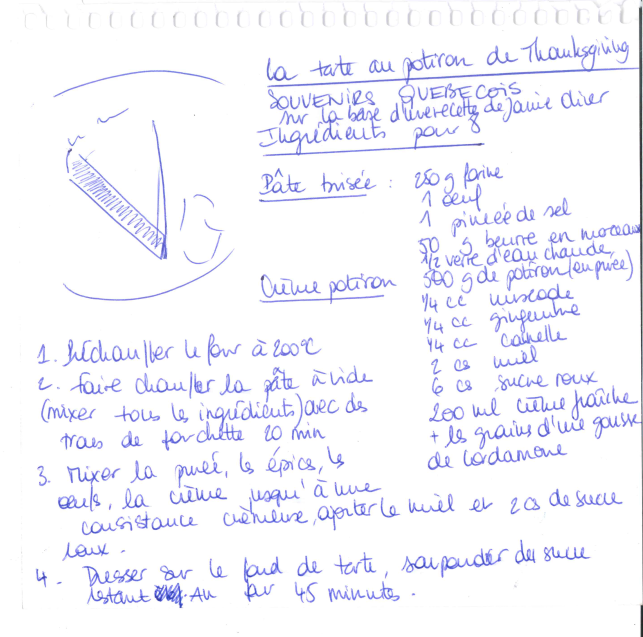 La tarte au potiron de Thanksgiving
SOUVENIRS QUEBECOIS
sur la base d'une recette de Jamie Oliver
Ingrédients pour 8
Pâte brisée : 250 g farine
1 oeuf
1 pincée de sel
50 g beurre en morceaux
1/2 verre d'eau chaude
Crème potiron 500 g de potiron (en purée)
1/4 cc muscade
1/4 cc gingembre
1/4 cc canelle
2 cs miel
6 cs sucre roux
200 ml crème fraîche
+ les grains d'une gousse
de cardamone
1. Réchauffer le four à 200°C
2. Faire chauffer la pâte à vide
(mixer tous les ingrédients) avec des
traits de fourchette 20 min
3. Mixer la purée, les épices, les
oeufs, la crème jusqu'à une
consistance crèmeuse, ajouter le miel et 2 cs de sucre
roux.
4. Dresser sur le fond de tarte, saupouder du sucre
restant. Au four 45 minutes.